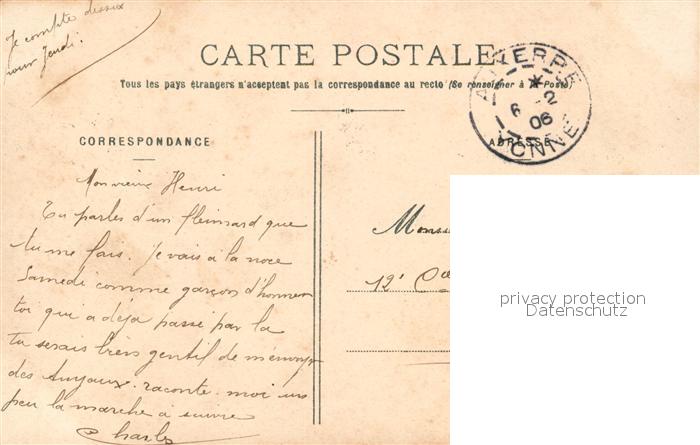 Je compte dessus
pour Jeudi.
CARTE POSTALE
Tous les pays étrangers n'acceptent pas la correspondance au recto (Se renseigner à la Poste)
AUXERRE
* 
6 -2
06
YONNE
CORRESPONDANCE
ADRESSE
Mon vieux Henri
Tu parles d'un flemard que
tu me fais. Je vais à la noce
Samedi comme garçon d'honneur
toi qui a déja passé par la
tu serais très gentil de m'envoyer
des tuyaux. raconte-moi un
peu la marche à suivre
Charles
12e
privacy protection
Datenschutz